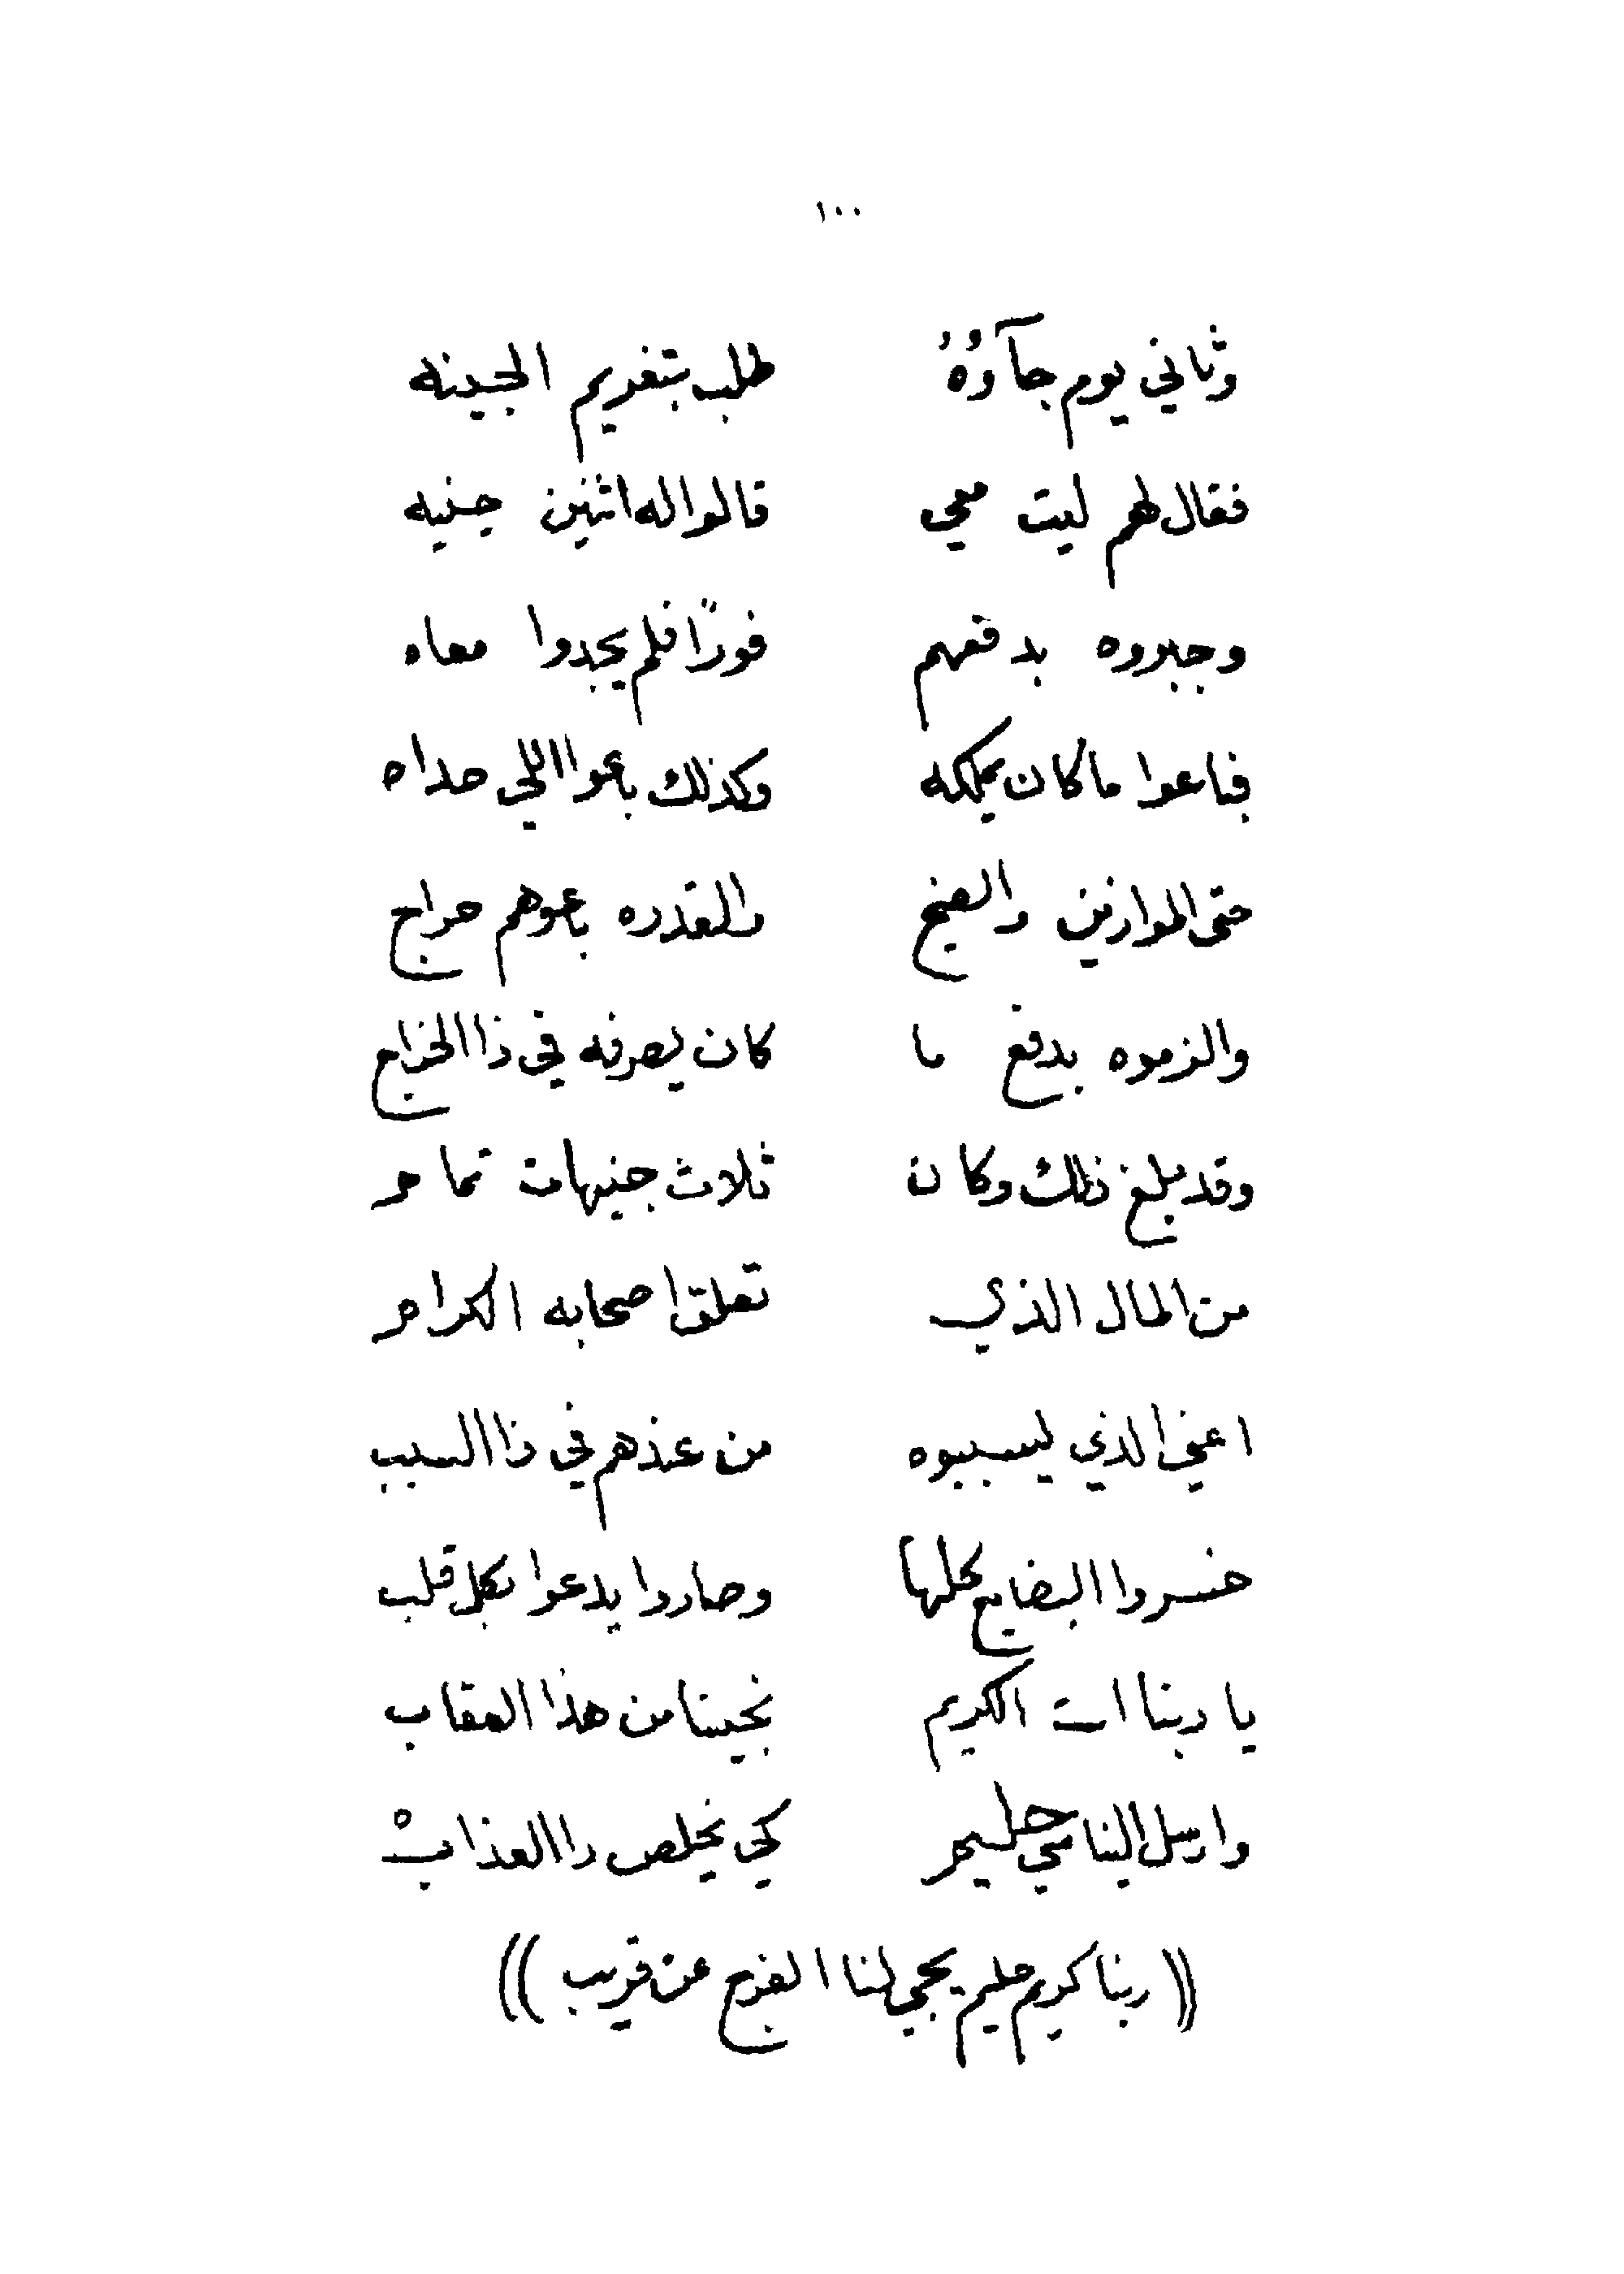 ١٠٠
وثاني يوم جآؤهُ طلب بتغريم الجينه
فقال لهم ليت معي قالوا له اثنين جنيه
وجبروه بدفعهم فورًا فلم يجدوا معاه
فباعوا ما كان يملكه وكذلك باعوا اللي حداه
حتى الموازين والصنج والقدره باعوهم حراج
والزموه بدفع ما كان يصرفه في ذا الخراج
وقد بلغ ذلك وكان ثلاث جنيهات تمام
من المال الذي تعلق اصحابه الكرام
اعني الذي يسببوه من عندهم في ذا السبب
خسروا البضايع كلها وصاروا يدعوا بكل قلب
يا ربنا انت الكريم نجينا من هذا العقاب
وارسل الينا مي حليم كي يخلص ذا العذاب
(( ربنا كريم حليم يجي لنا الفرج عن قريب ))